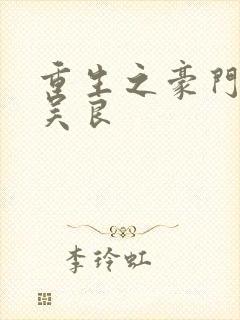 重生之豪門
吴良
李玲虹